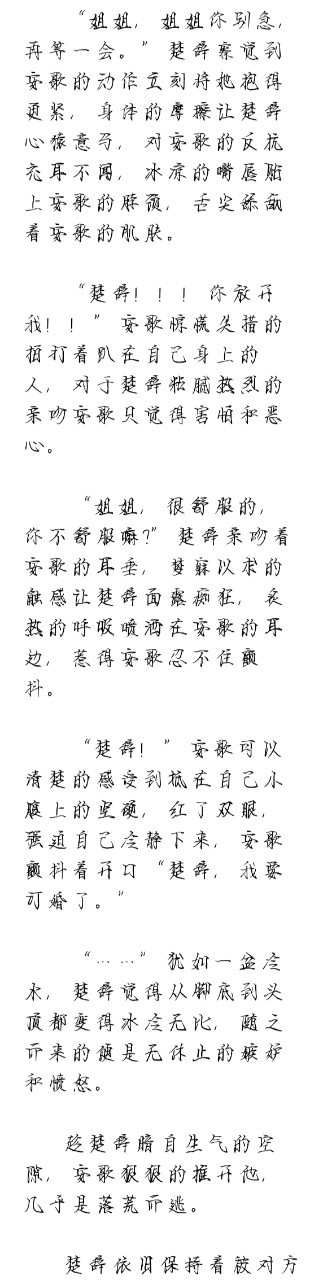 “姐姐，姐姐你别急，
再等一会。”楚辞察觉到
安歌的动作立刻将她抱得
更紧，身体的摩擦让楚辞
心猿意马，对安歌的反抗
充耳不闻，冰凉的嘴唇贴
上安歌的脖颈，舌尖舔舐
着安歌的肌肤。
“楚辞！！！你放开
我！！”安歌惊慌失措的
拍打着趴在自己身上的
人，对于楚辞粘腻热烈的
亲吻安歌只觉得害怕和恶
心。
“姐姐，很舒服的，
你不舒服嘛？”楚辞亲吻着
安歌的耳垂，梦寐以求的
触感让楚辞面露痴狂，炙
热的呼吸喷洒在安歌的耳
边，惹得安歌忍不住颤
抖。
“楚辞！”安歌可以
清楚的感受到抵在自己小
腹上的坚硬，红了双眼，
强迫自己冷静下来，安歌
颤抖着开口“楚辞，我要
订婚了。”
“……”犹如一盆冷
水，楚辞觉得从脚底到头
顶都变得冰冷无比，随之
而来的便是无休止的嫉妒
和愤怒。
趁楚辞暗自生气的空
隙，安歌狠狠的推开他，
几乎是落荒而逃。
楚辞依旧保持着被对方